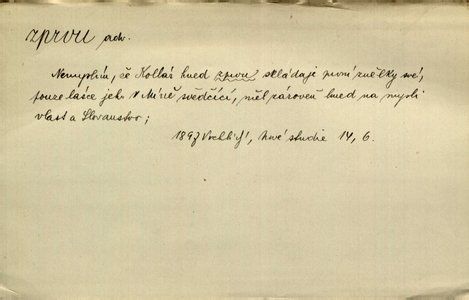 zprvu adv.
Nemyslím, že Kollár hned zprvu skládaje první znělky své,
pouze lásce jeho k Míně svědčící, měl zároveň hned na mysli
vlast a Slovanstvo;
1897 Vrchlický, Nové studie 14, 6.